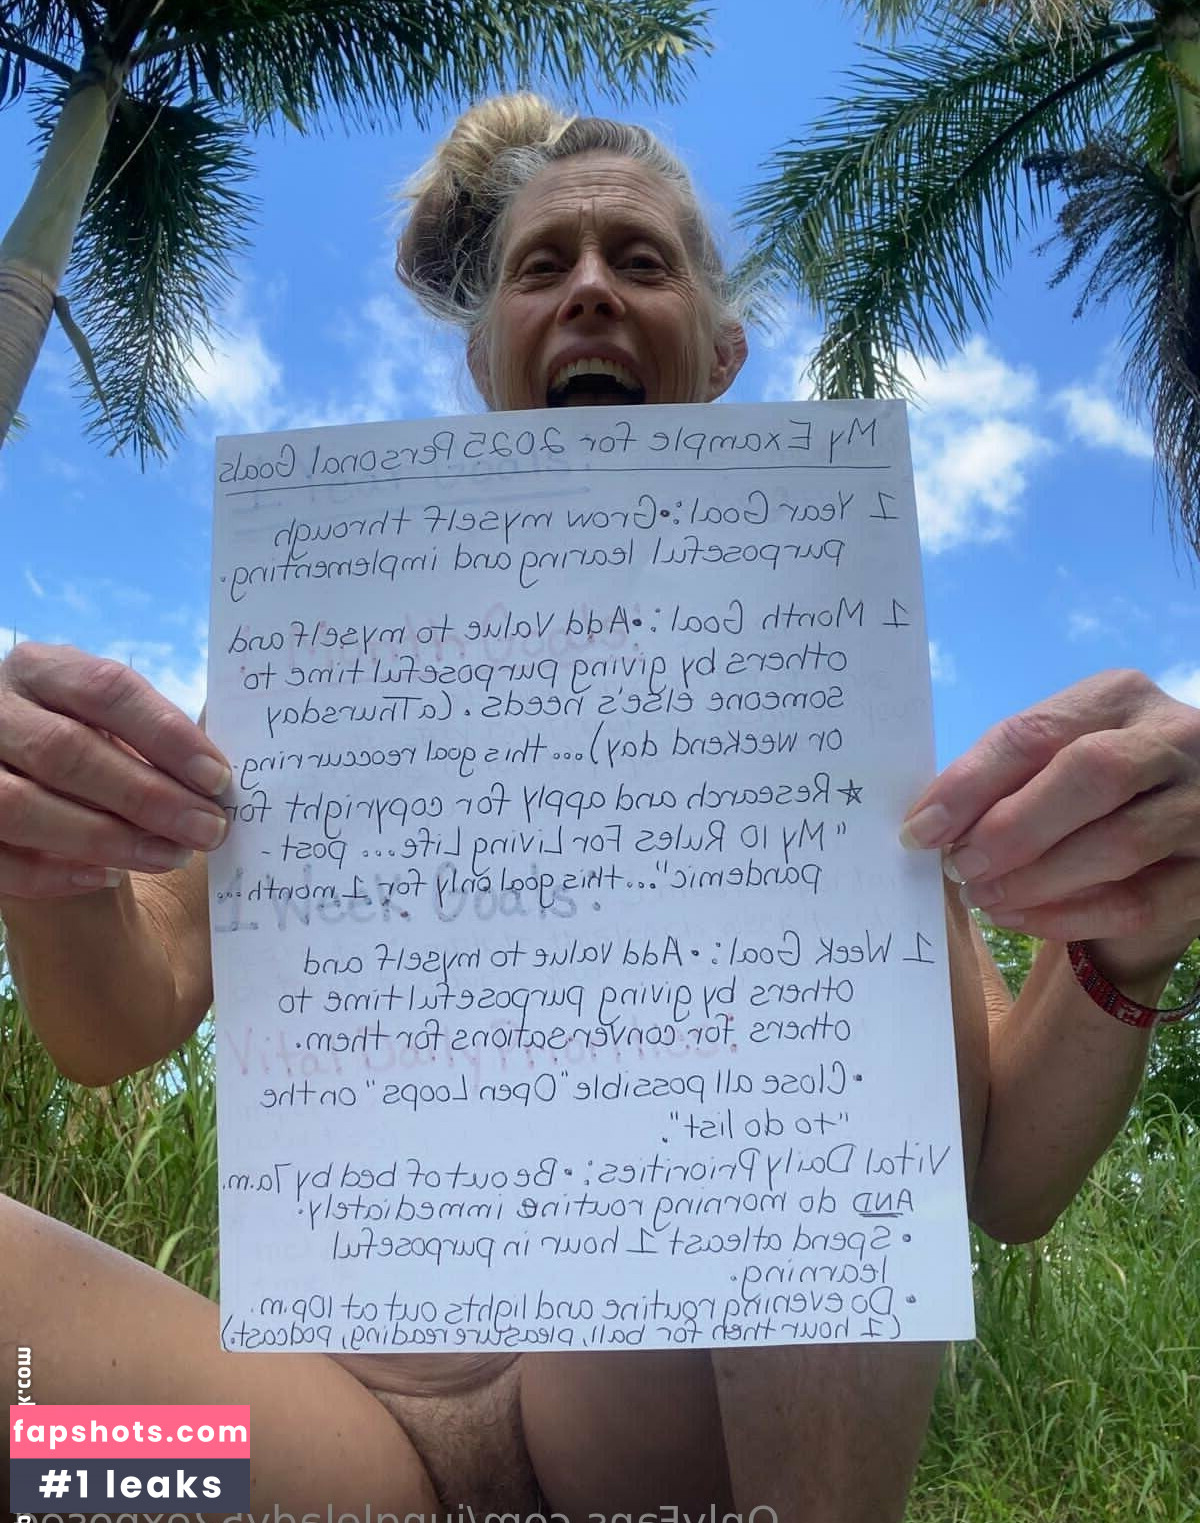 My Example for 2025 Personal Goals
1 Year Goal: • Grow myself through
purposeful learing and implementing.
1 Month Goal: • Add Value to myself and
others by giving purposeful time to
someone else's needs. (a Thursday
or weekend day)... this goal reoccurring.
★ Research and apply for copyright for
"My 10 Rules For Living Life... post -
pandemic"... this goal only for 1 month...
1 Week Goals:
1 Week Goal: • Add value to myself and
others by giving purposeful time to
others for conversations for them.
Vital Daily Priorities:
• Close all possible "Open Loops" on the
"to do list".
Vital Daily Priorities: • Be out of bed by 7a.m.
AND do morning routine immediately.
• Spend at least 1 hour in purposeful
learning.
• Do evening routine and lights out at 10p.m.
(1 hour then for ball, pleasure reading, podcast.)
k.com
fapshots.com
#1 leaks